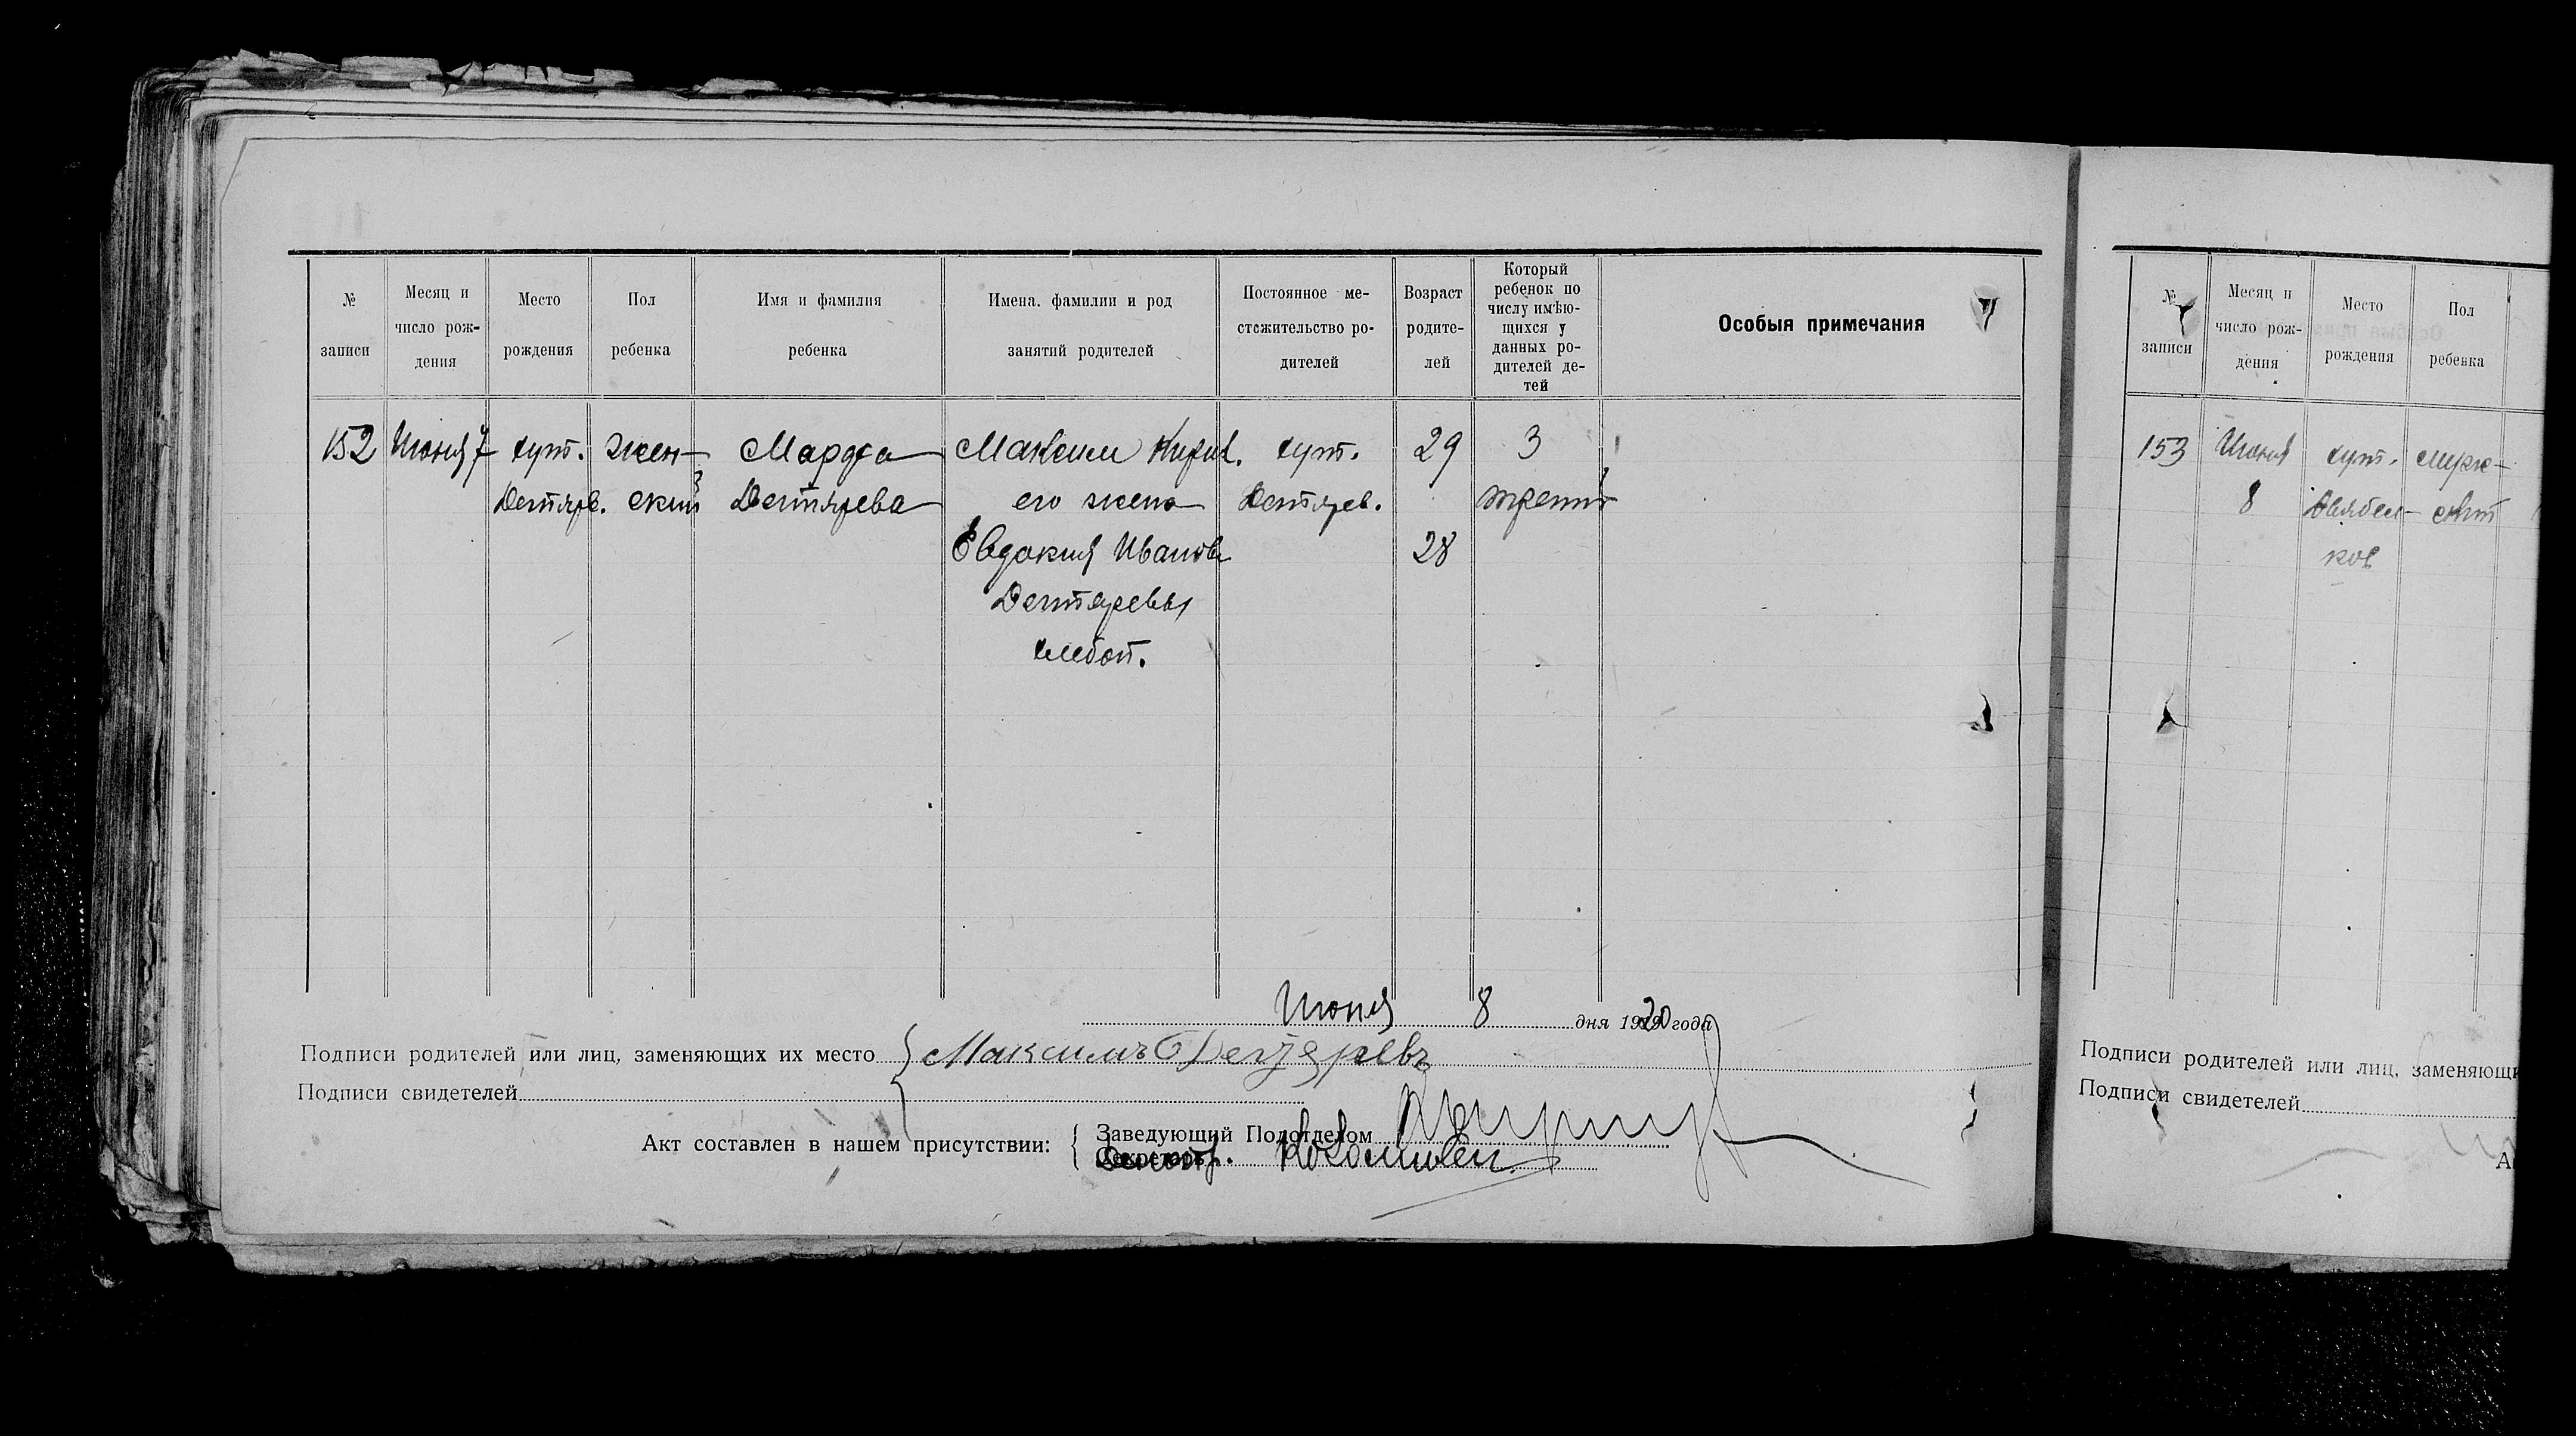 № записи
Месяц и число рождения
Место рождения
Пол ребенка
Имя и фамилия ребенка
Имена, фамилии и род занятий родителей
Постоянное местожительство родителей
Возраст родителей
Который ребенок по числу имѣющихся у данных родителей детей
Особыя примечания
152 Июня 7 хут. жен- Марфа Максим Кирил. хут. 29 3
Дегтярев. ский Дегтярева его жена Дегтярев. третий
Евдокия Иванов. 28
Дегтяревы
хлебоп.
Июня 8 дня 1920 года
Подписи родителей или лиц, заменяющих их место Максимъ Дегтеревъ
Подписи свидетелей
Акт составлен в нашем присутствии:
Заведующий Подотделом
Делопр.
№ записи
Месяц и число рождения
Место рождения
Пол ребенка
153 Июня хут. муж-
8 ской
ков
Подписи родителей или лиц, заменяющи
Подписи свидетелей
А